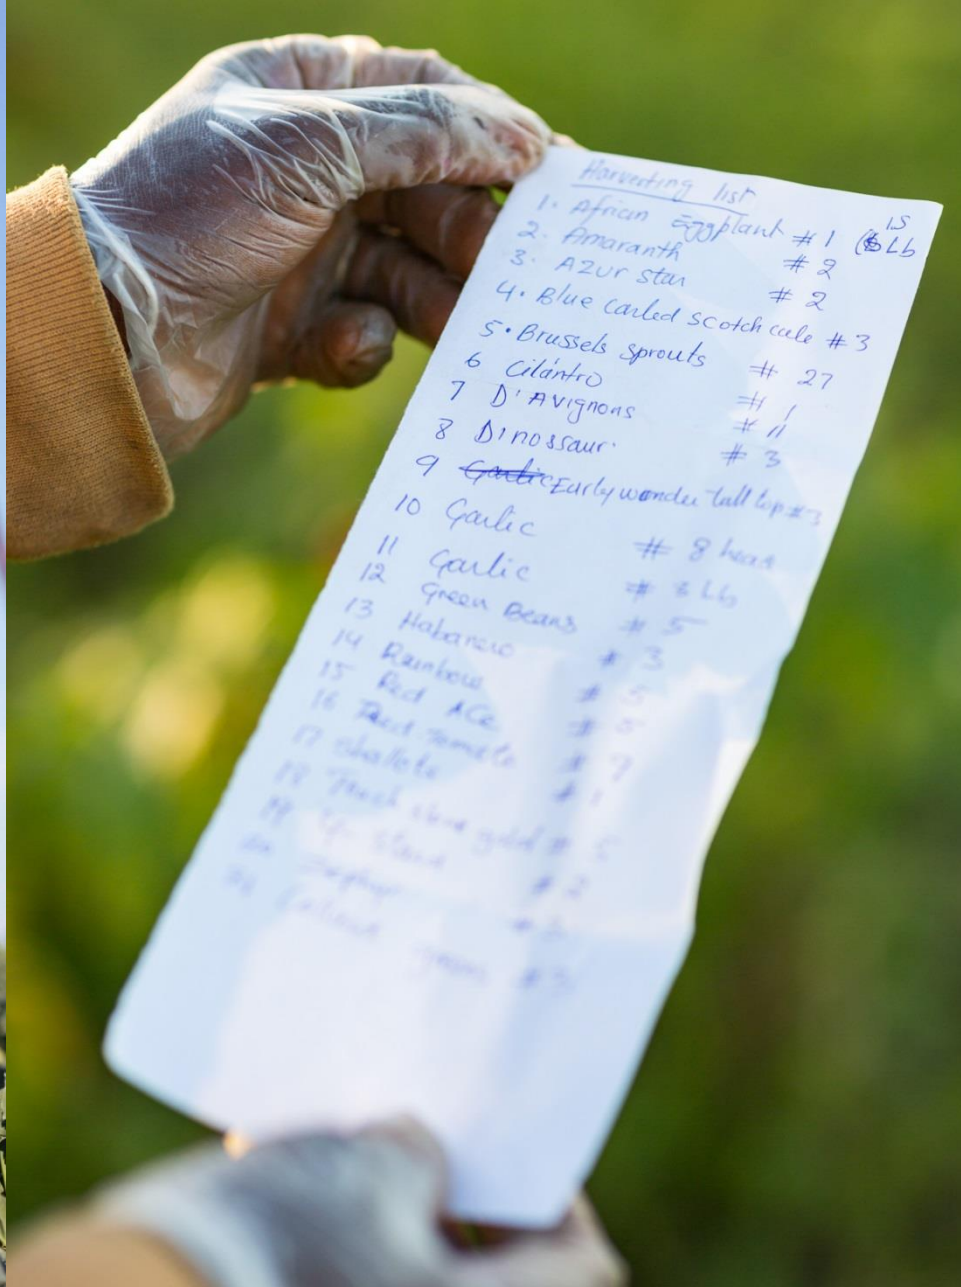 Harvesting list
1. African Eggplant #1 15 Lb
2. Amaranth #2
3. Azur star #2
4. Blue carled scotch cale #3
5. Brussels sprouts # 27
6 Cilántro # 1
7 D'Avignons # 11
8 Dinossaur # 3
9 Early wonder tall top #3
10 Garlic # 8 head
11 Garlic # 3 Lb
12 Green Beans # 5
13 Habanero # 3
14 Rainbow # 5
15 Red ACe # 5
16 Red Tomato # 7
17 shallots # 1
18 gold # 5
19 # 2
20
21 green #3